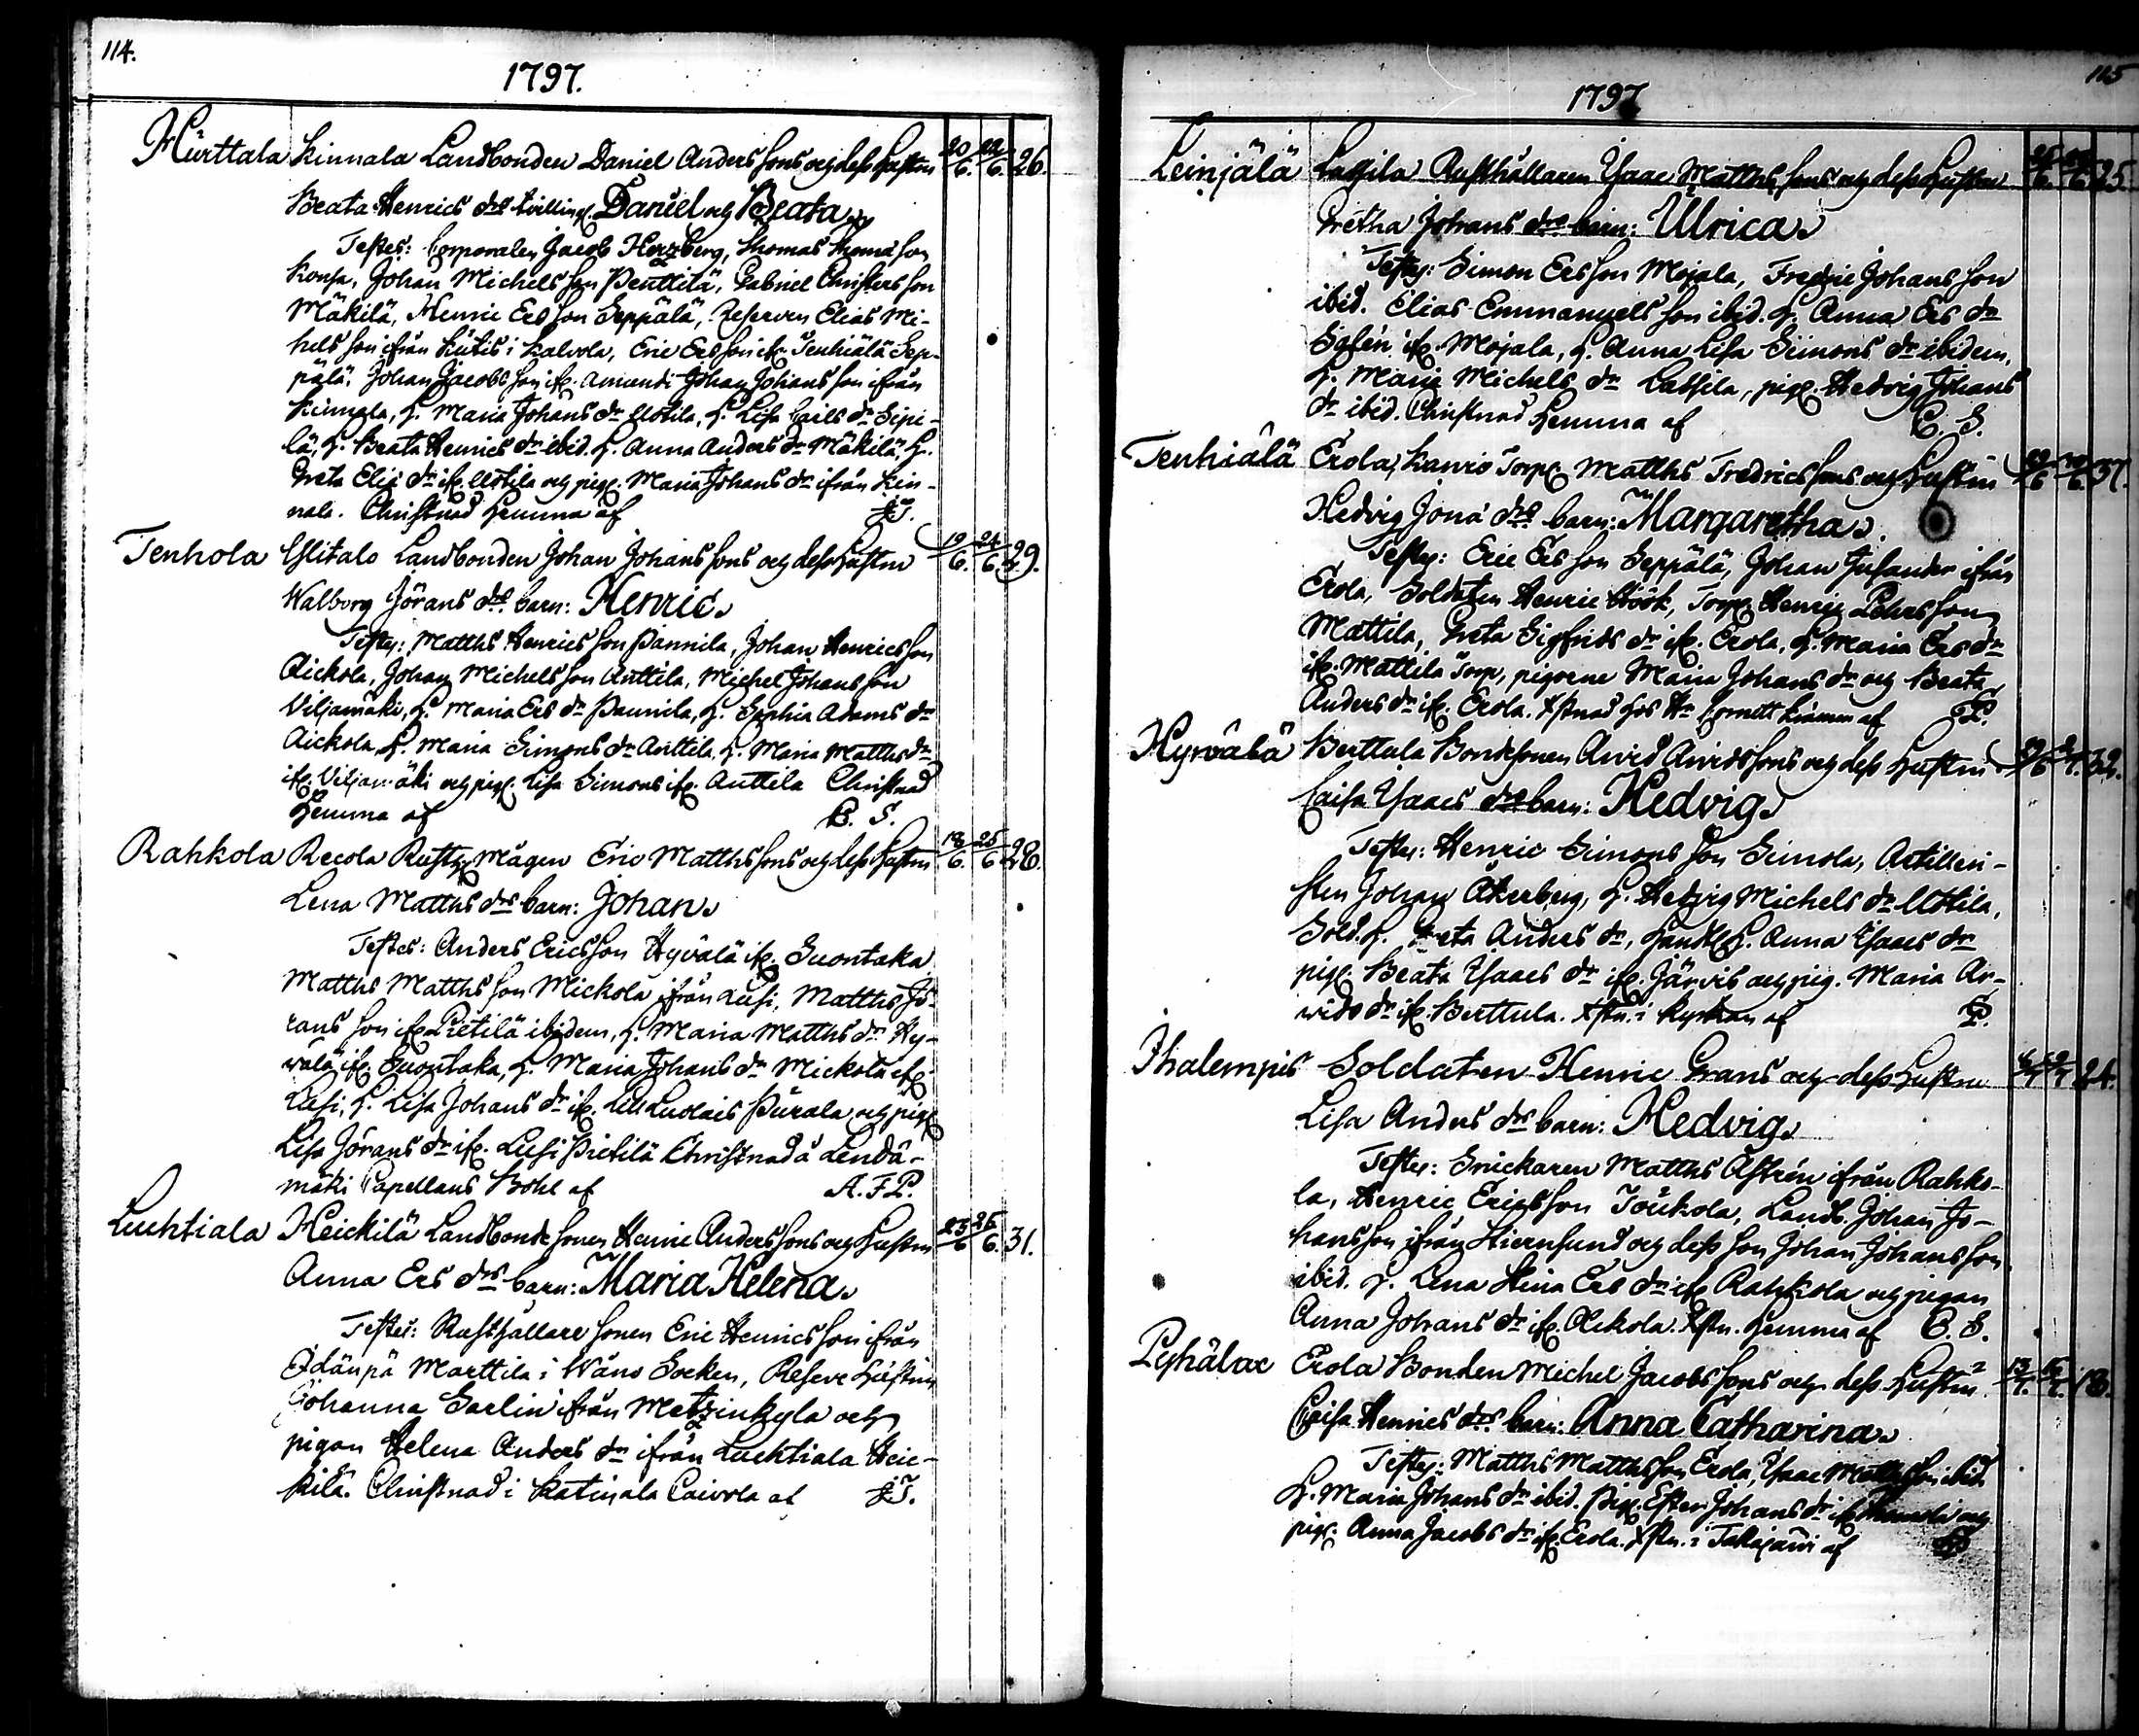 114.
1797.
Hurttala Kinnala Landbonden Daniel Anders sons och dess Hustru 20/6. 22/6. 26.
Beata Henrics drs tvilling. Daniel och Beata
Testes: Corporalen Jacob Herzberg, Thomas Thomæ son
Konsa, Johan Michels son Penttilä, Gabriel Christers son
Mäkilä, Henric Ers son Seppälä, Reserven Elias Mi-
hels son ifrån Kutis i Kalvola, Eric Ers son ifr. Tenhiälä Sep-
pälä, Johan Jacobs son ifr. Amundi Johan Johans son ifrån
Kinnala, h. Maria Johans dr Uotila, h. Lisa Carls dr Sipi-
lä, h. Beata Henrics dr ibid. h. Anna Anders dr Mäkilä, h.
Greta Eliæ dr ifr. Uotila och pig. Maria Johans dr ifrån Kin-
nala. Christnad hemma af
Tenhola Ylitalo Landbonden Johan Johans sons och dess Hustru 19/6. 24/6. 29.
Walborg Jörans drs barn: Henric
Testes: Matths Henrics son Pannila, Johan Henrics son
Äickola, Johan Michels son Anttila, Michel Johans son
Viljamäki, h. Maria Ers dr Pannila, h. Sophia Adams dr
Äickola, h. Maria Simons dr Anttila, h. Maria Matths dr
ifr. Viljamäki och pig. Lisa Simons ifr. Anttila Christnad
hemma af C. S.
Rahkola Recola Rusth. Mågen Eric Matths sons och dess Hustru 18/6. 25/6 28.
Lena Matths drs barn: Johan
Testes: Anders Erics son Hyvälä ifr. Suontaka
Matths Matths son Mickola ifrån Lusi, Matths Jö-
rans son ifr. Pietilä ibidem, h. Maria Matths dr Hy-
välä ifr. Suontaka, h. Maria Johans dr Mickola ifr.
Lusi, h. Lisa Johans dr ifr. Lill Luolais Pürala och pig.
Lisa Jörans dr ifr. Lusi Pietilä Christnad å Lendä-
mäki Capellans Bohl af A. F. P.
Luhtiala Heickilä Landbonde sonen Henric Anders sons och Hustru 23/6 25/6. 31.
Anna Ers drs barn: Maria Helena
Testes: Rusthållare sonen Eric Henrics son ifrån
Marttila i Wånå Socken, Reserve Hustrun
Johanna Sarlin ifrån Metzinkyla och
pigan Helena Anders dr ifrån Luhtiala Heic-
kilä. Christnad i Katinala Caivola af
115
1797
Leinjälä Lassila Rusthållaren Isaac Matths sons och dess Hustru 25.
Gretha Johans drs barn: Ulrica
Testes: Simon Ers son Mojala, Fredric Johans son
ibid. Elias Emmanuels son ibid. h. Anna Ers dr
ifr. Mojala, h. Anna Lisa Simons dr ibidem,
h. Maria Michels dr Lassila, pig. Hedvig Johans
dr ibid. Christnad hemma af C. S.
Tenhiälä Erola, Torp. Matths Fredrics sons och Hustru 37.
Hedvig Jonæ drs barn: Margaretha
Testes: Eric Ers son Seppälä, Johan ifrån
Erola, Soldaten Henric Höök, Torp. Henric Pehrs son
Mattila, Greta Sigfrids dr ifr. Erola, h. Maria Ers dr
ifr. Mattila Torp, pigorne Maria Johans dr och Beata
Anders dr ifr. Erola. Xstnad hos Hr Cornett af P.
Hyrvälä Berttula Bondesonen Arvid Arvids sons och dess Hustru 32.
Caisa Isaacs drs barn: Hedvig
Testes: Henric Simons son Simola, Artilleri-
sten Johan Åkerberg, h. Hedvig Michels dr Uotila,
Sold. h. Greta Anders dr, h. Anna Isaacs dr
pig. Beata Isaacs dr ifr. Järvis och pig. Maria Ar-
vids dr ifr. Berttula. Xstn. i kyrkan af P.
Ihalempis Soldaten Henric Grans och dess Hustru 24.
Lisa Anders drs barn: Hedvig
Testes: Snickaren Matths Åstrén ifrån Rahko-
la, Henric Erics son Toukola, Landb. Johan Jo-
hans son ifrån Stiernsund och dess son Johan Johans son
ibid. h. Lena Stina Ers dr ifr. Rahkola och pigan
Anna Johans dr ifr. Äickola. Xstn. hemma af C. S.
Pyhälax Erola Bonden Michel Jacobs sons och dess Hustru 13/7. 16/7. 18.
Caisa Henrics drs barn: Anna Catharina
Testes: Matths Matths son Erola, Isaac Matths son ibid.
h. Maria Johans dr ibid. Pig. Ester Johans dr ifr. och
pig. Anna Jacobs dr ifr. Erola. Xstn. i Takajärvi af